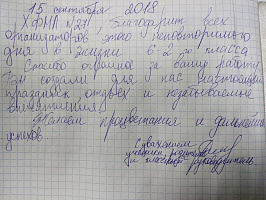 15 сентября 2018.
ХФМЛ №27 благодарит всех
организаторов этого неповторимого
дня в жизни 6 2 го класса
Спасибо огромное за вашу работу
Вы создали для нас настоящий
праздник отдых и незабываемые
впечатления
Желаем процветания и дальнейших
успехов.
С уважением
ученики, родители
и классный руководитель.